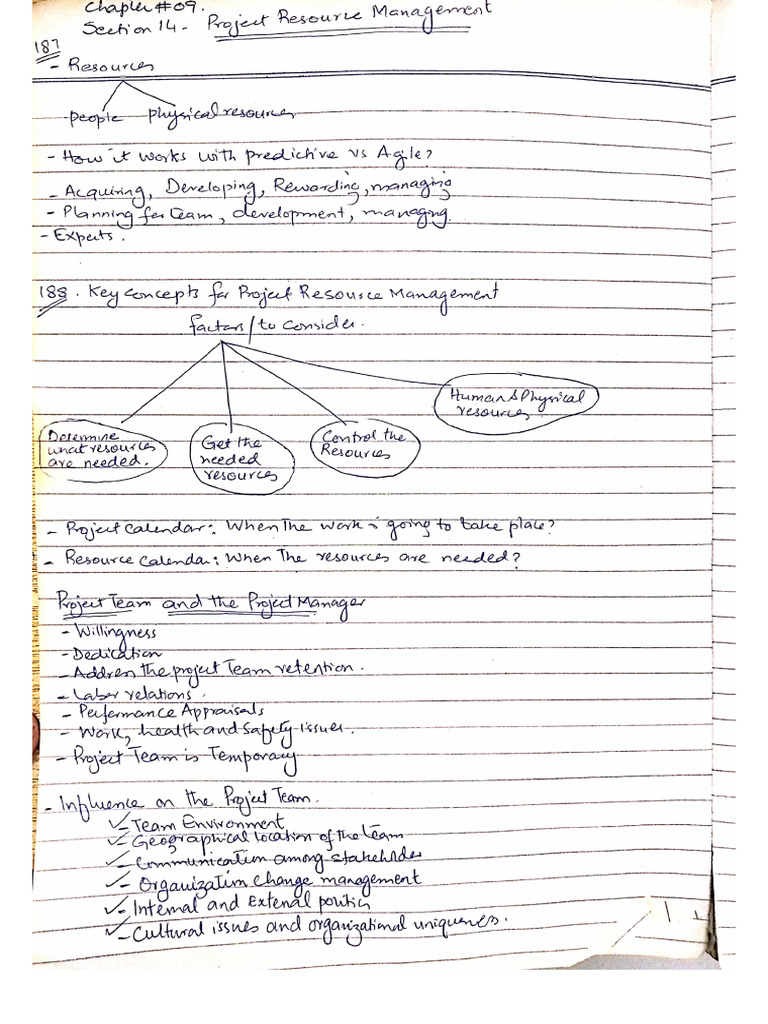 Chapter #09.
Section 14 - Project Resource Management
187
- Resources
people physical resources
- How it works with predictive vs Agile?
- Acquiring, Developing, Rewarding, managing
- Planning for team, development, managing.
- Experts.
188. Key concepts for Project Resource Management
factors / to consider.
Human & Physical
resources
Determine
what resources
are needed.
Get the
needed
resources
Control the
Resources
- Project Calendar: When the work is going to take place?
- Resource Calendar: When the resources are needed?
Project Team and the Project Manager
- Willingness
- Dedication
- Address the project Team retention.
- Labor relations.
- Performance Appraisals
- Work, health and safety issues.
- Project Team is Temporary
- Influence on the Project Team.
✓ - Team Environment
✓ - Geographical location of the team
✓ - Communication among stakeholder
✓ - Organization change management
✓ - Internal and External politics
✓ - Cultural issues and organizational uniqueness.